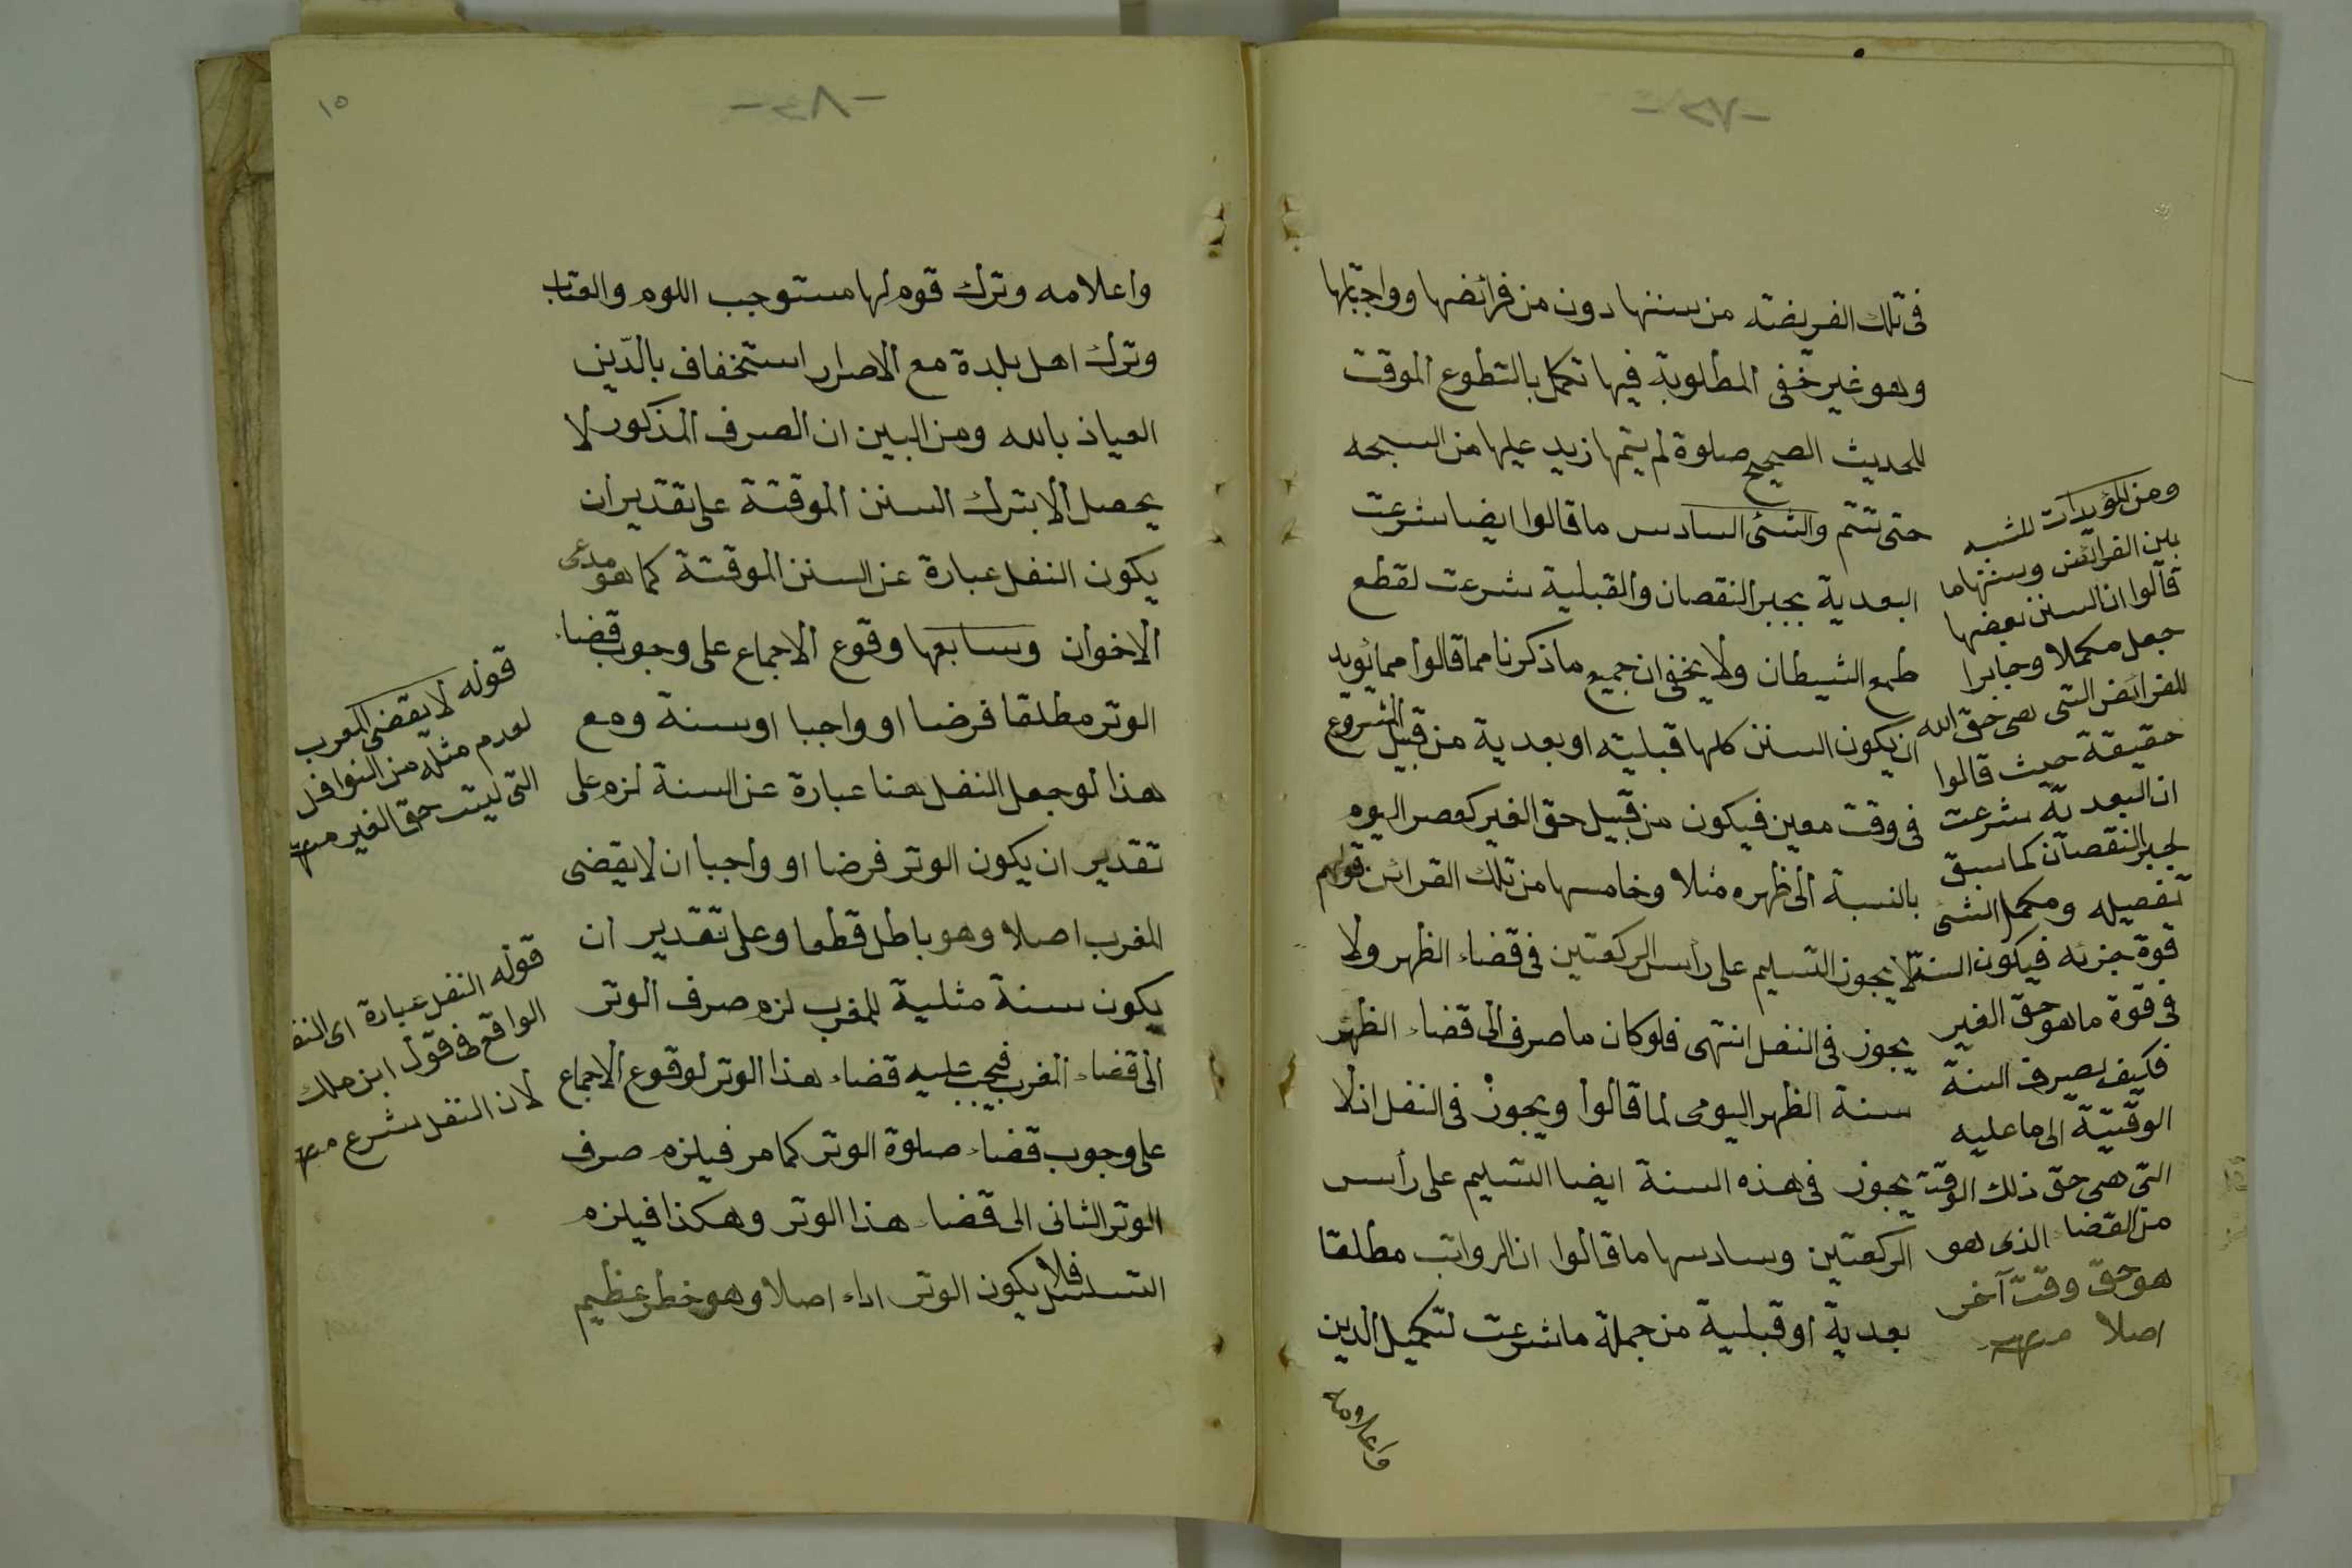 فى تلك الفريضة من سننها دون من فرائضها وواجباتها
وهو غير خفى المطلوبة فيها تكمل بالتطوع الموقت
للحديث الصحيح صلوة لم يتمها زيد عليها من السبحه
حتى تتم والشئ السادس ما قالوا ايضا شرعت
البعدية بجبر النقصان والقبلية شرعت لقطع
طمع الشيطان ولا يخفى ان جميع ما ذكرنا مما قالوا مما يؤيد
ان يكون السنن كلها قبلية او بعدية من قبيل الشروع
فى وقت معين فيكون من قبيل حق الغير كعصر اليوم
بالنسبة الى ظهره مثلا وخامسها من تلك القرائن قولهم
لا يجوز التسليم على رأس الركعتين فى قضاء الظهر ولا
يجوز فى النفل انتهى فلو كان ما صرف الى قضاء الظهر
سنة الظهر اليومى لما قالوا ويجوز فى النفل اذ لا
يجوز فى هذه السنة ايضا التسليم على رأس
الركعتين وسادسها ما قالوا ان الرواتب مطلقا
بعدية او قبلية من جملة ما شرعت لتكميل الدين
واعلامه
ومن المؤيدات للشبه
بين الفرائض وسننها ما
قالوا ان السنن بعضها
جعل مكملا وجابرا
للفرائض التى هى حق الله
حقيقة حيث قالوا
ان البعدية شرعت
لجبر النقصان كما سبق
تفصيله ومكمل الشئ
قوة جزئه فيكون السنة
فى قوة ما هو حق الغير
فكيف يصرف السنة
الوقتية الى ما عليه
التى هى حق ذلك الوقت
من القضا الذى هو
هو حق وقت آخر
اصلا منه
١٥
واعلامه وترك قوم لها مستوجب اللوم والعتاب
وترك اهل بلدة مع الاصرار استخفاف بالدّين
العياذ بالله ومن البين ان الصرف المذكور لا
يحصل الا بترك السنن الموقتة على تقدير ان
يكون النفل عبارة عن السنن الموقتة كما هو مدعى
الاخوان وسابعها وقوع الاجماع على وجوب قضاء
الوتر مطلقا فرضا او واجبا او سنة ومع
هذا لو جعل النفل هنا عبارة عن السنة لزم على
تقدير ان يكون الوتر فرضا او واجبا ان لا يقضى
المغرب اصلا وهو باطل قطعا وعلى تقدير ان
يكون سنة مثلية للمغرب لزم صرف الوتر
الى قضاء المغرب فيجب عليه قضاء هذا الوتر لوقوع الاجماع
على وجوب قضاء صلوة الوتر كما مر فيلزم صرف
الوتر الثانى الى قضاء هذا الوتر وهكذا فيلزم
التسلسل فلا يكون الوتر اداء اصلا وهو خطر عظيم
قوله لا يقضى المغرب
لعدم مثله من النوافل
التى ليست حق الغير منه
قوله النفل عبارة اى النفل
الواقع فى قول ابن ملك
لان النفل شرع منه